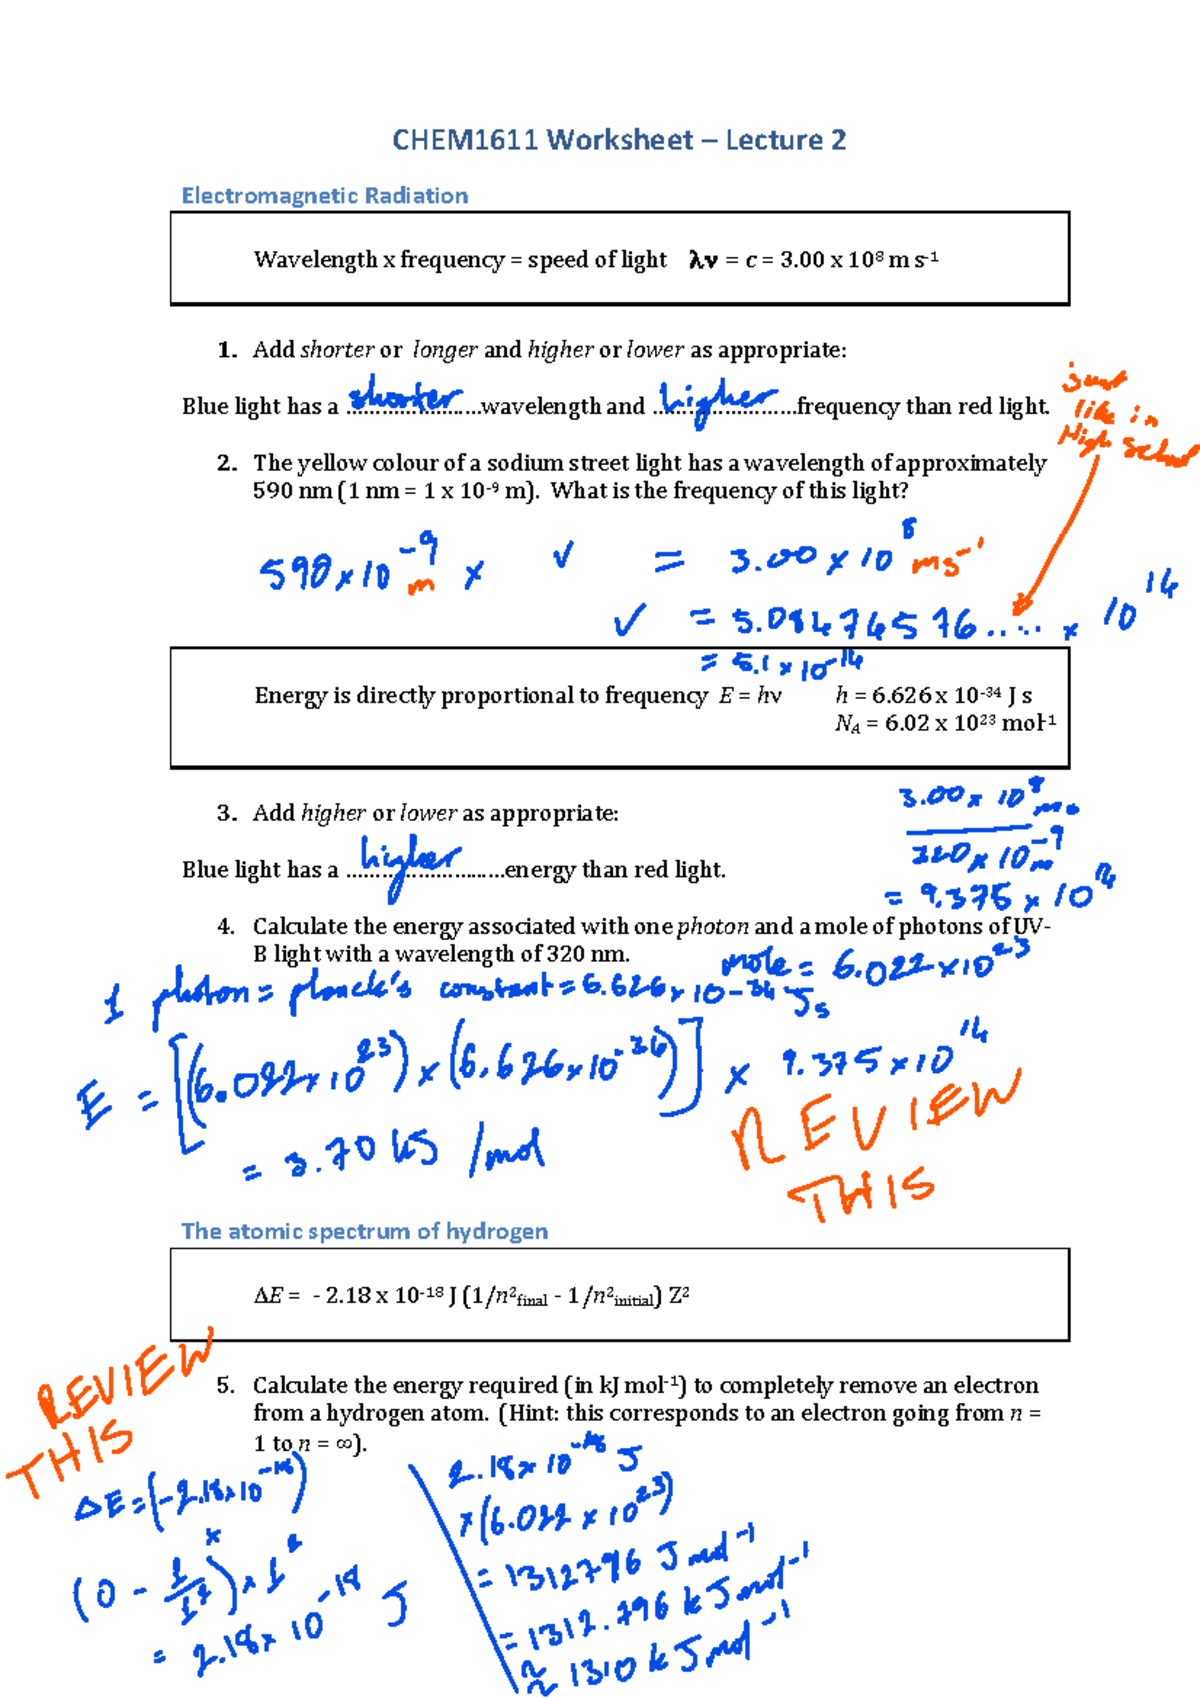 CHEM1611 Worksheet – Lecture 2
Electromagnetic Radiation
Wavelength x frequency = speed of light λν = c = 3.00 x 10⁸ m s⁻¹
1. Add shorter or longer and higher or lower as appropriate:
Blue light has a ...shorter...wavelength and ...higher...frequency than red light.
just
like in
High School
2. The yellow colour of a sodium street light has a wavelength of approximately
590 nm (1 nm = 1 x 10⁻⁹ m). What is the frequency of this light?
590 x 10⁻⁹ m x v = 3.00 x 10⁸ ms⁻¹
v = 5.08474576.... x 10¹⁴
= 5.1 x 10⁻¹⁴
Energy is directly proportional to frequency E = hν h = 6.626 x 10⁻³⁴ J s
N_A = 6.02 x 10²³ mol⁻¹
3. Add higher or lower as appropriate:
Blue light has a ...higher...energy than red light.
3.00 x 10⁸
320 x 10⁻⁹ m
= 9.375 x 10¹⁴
4. Calculate the energy associated with one photon and a mole of photons of UV-
B light with a wavelength of 320 nm.
mole = 6.022 x 10²³
1 photon = planck's constant = 6.626 x 10⁻³⁴ Js
E = [(6.022 x 10²³) x (6.626 x 10⁻³⁴)] x 9.375 x 10¹⁴
= 3.70 kJ /mol
REVIEW
THIS
The atomic spectrum of hydrogen
ΔE = - 2.18 x 10⁻¹⁸ J (1/n²final - 1/n²initial) Z²
REVIEW
THIS
5. Calculate the energy required (in kJ mol⁻¹) to completely remove an electron
from a hydrogen atom. (Hint: this corresponds to an electron going from n =
1 to n = ∞).
ΔE = (-2.18 x 10⁻¹⁸)
x
(0 - 1/1²) x 1²
= 2.18 x 10⁻¹⁸ J
2.18 x 10⁻¹⁸ J
x (6.022 x 10²³)
= 1312796 J mol⁻¹
= 1312.796 kJ mol⁻¹
≈ 1310 kJ mol⁻¹